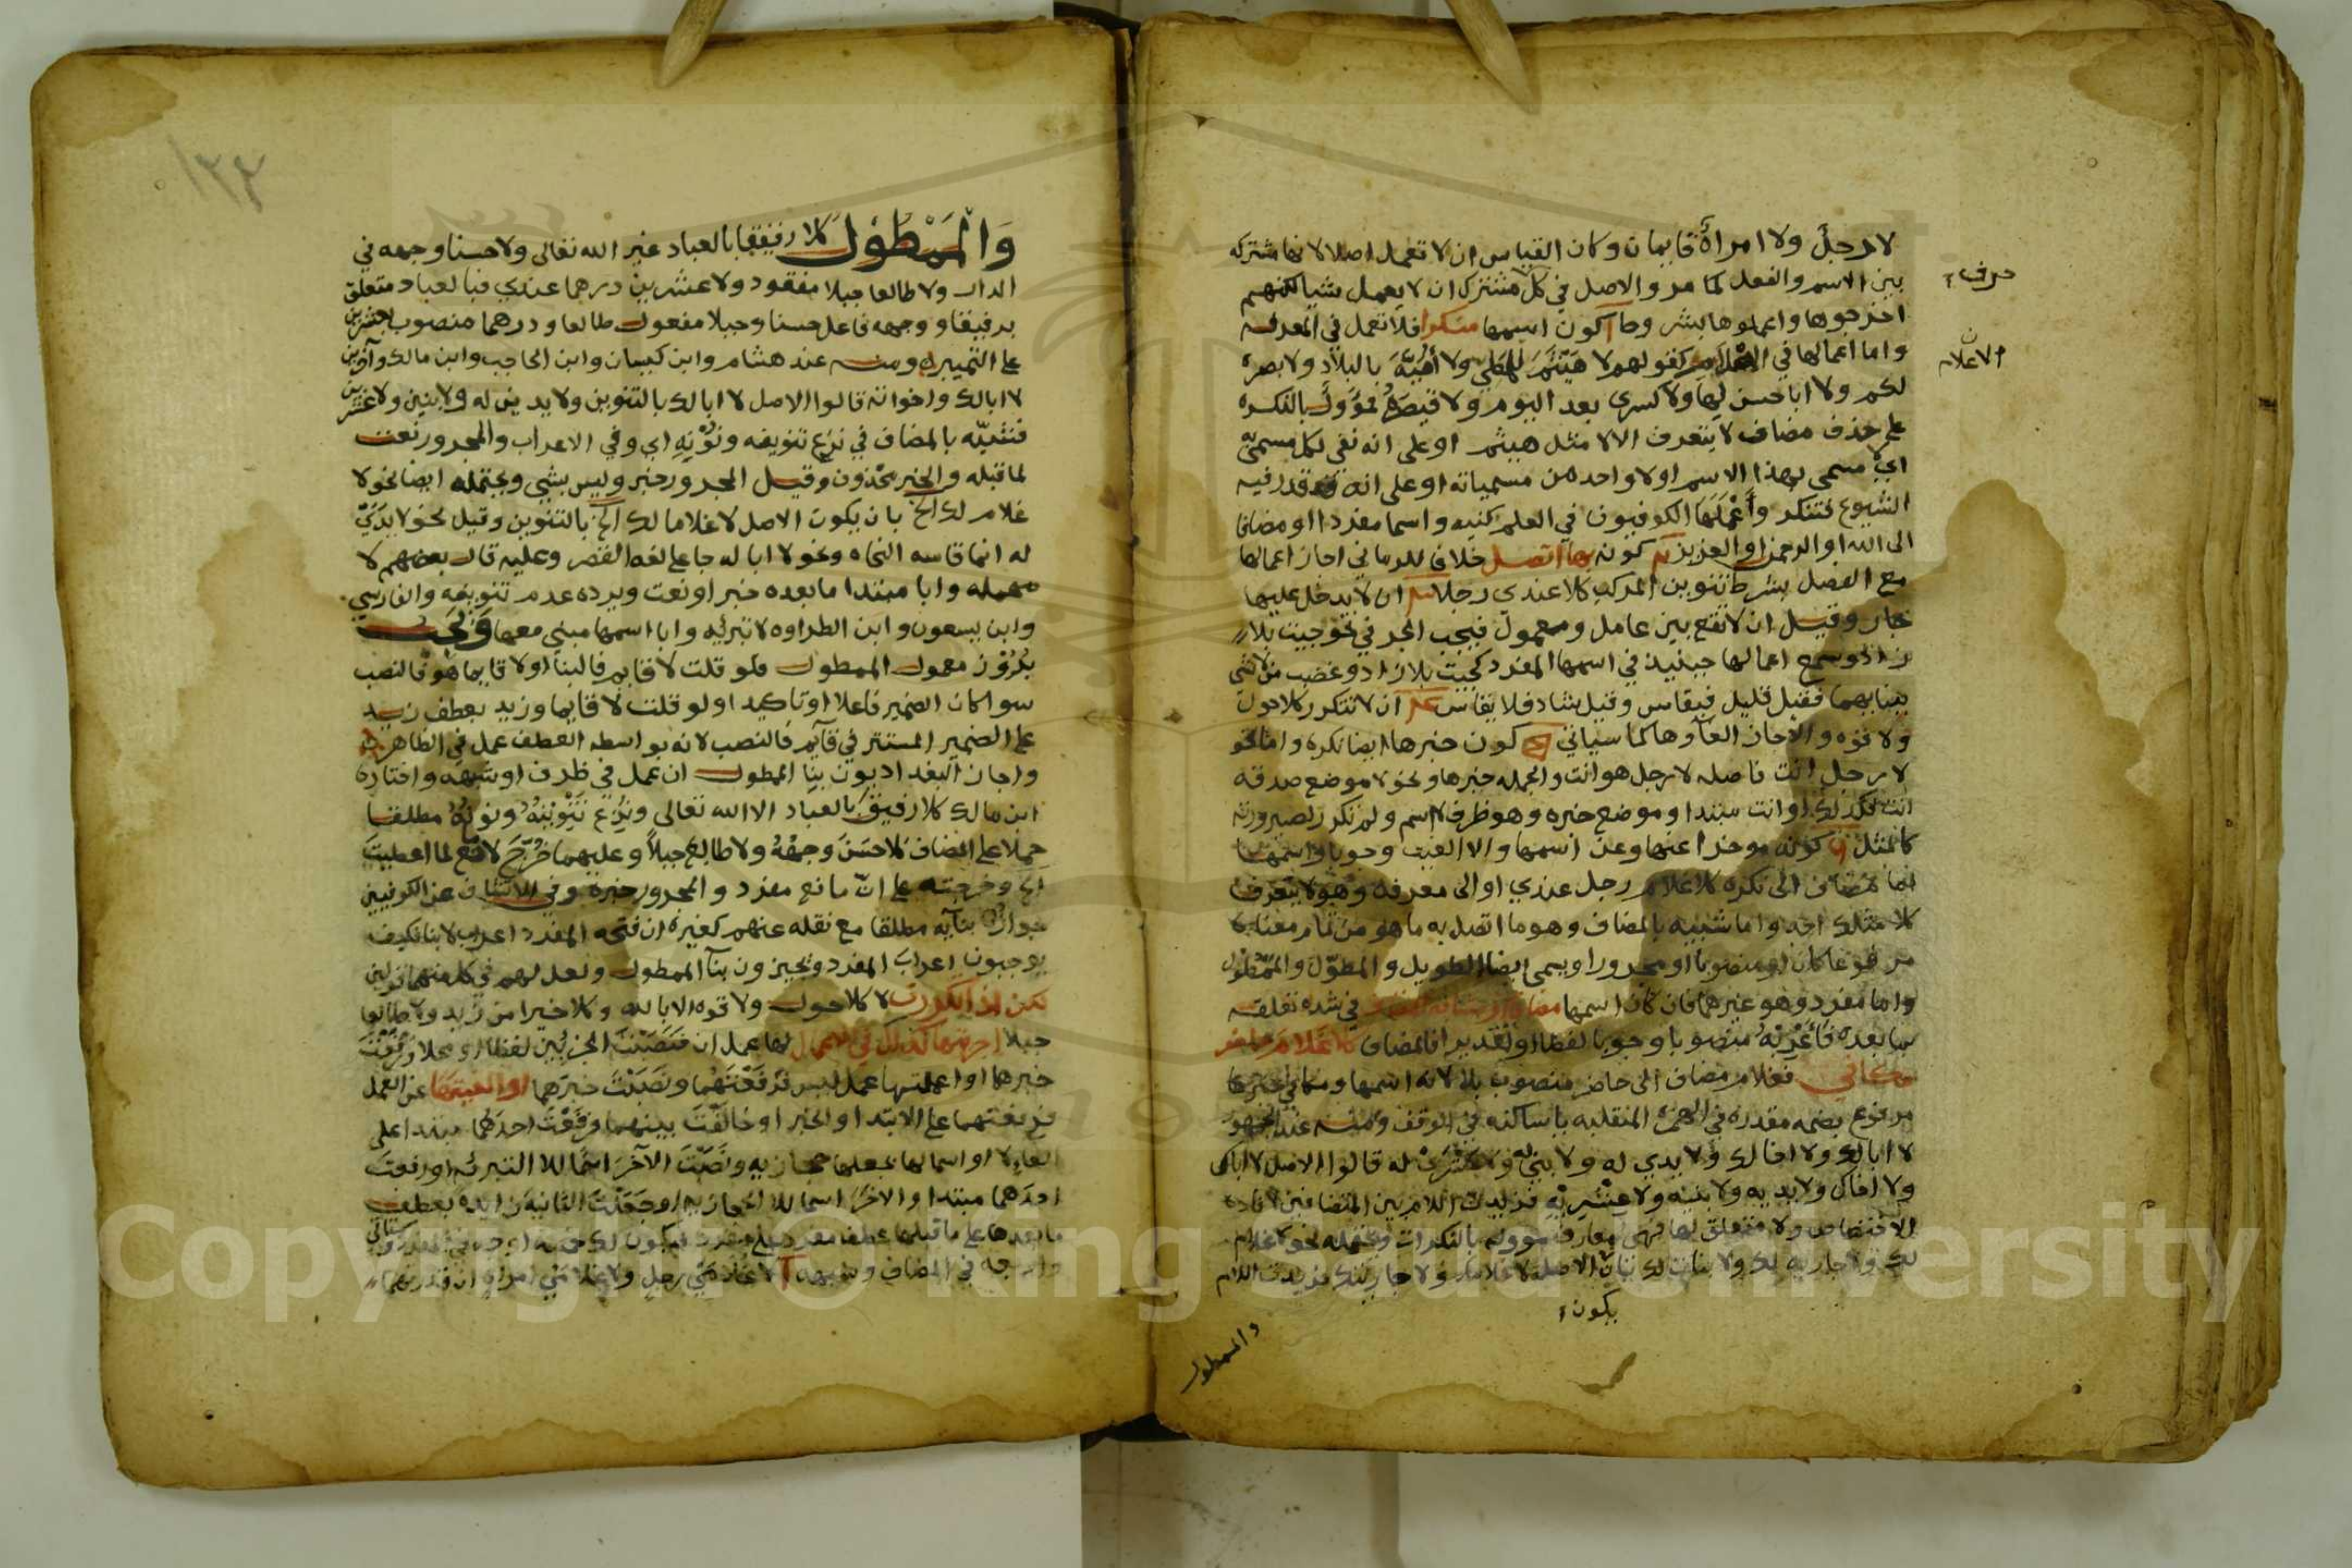 لا رجل ولا امرأة قايمان وكان القياس ان لا تعمل اصلا لانها مشتركه
بين الاسم والفعل كما مر والاصل في كل مشترك ان لا يعمل شيا لكنهم
حرف
اخرجوها واعملوها بشروط آ كون اسمها منكرا فلا تعمل في المعرفه
واما اعمالها في الاعلام كقولهم لا هيثم للمطي ولا أمية بالبلاد ولا بصرة
الاعلام
لكم ولا ابا حسن لها ولا كسرى بعد اليوم ولا قيصر فمؤول بالنكره
على حذف مضاف لا يتعرف اي لا مثل هيثم او على انه نفى لكل مسمى به
اي لا مسمى بهذا الاسم او لا واحد من مسمياته او على انه قد قدر فيه
الشيوع فتنكر وأعملها الكوفيون في العلم كنيه واسما مفردا او مضافا
الى الله او الرحمن او العزيز كونه بها اتصل خلافا للرماني اجاز اعمالها
مع الفصل بشرط تنوين المركب كلا عندي رجلا ان لا يدخل عليها
جار وقيل ان لا تقع بين عامل ومعمول فيجب الجر في نحو جيت بلا
زاد وسمع اعمالها حينيذ في اسمها المفرد كجيت بلا زاد وغضب من لا شي
ببنايهما فقيل قليل فيقاس وقيل شاذ فلا يقاس ان لا تتكرر كلا حول
ولا قوه والا جاز الغاوها كما سياتي كون خبرها ايضا نكره واما نحو
لا رجل انت فاصله لا رجل هو انت والجمله خبرها ونحو لا موضع صدقه
انت فكذلك او انت مبتدا وموضع خبره وهو ظرف لا اسم ولم تكرر لصيرورته
كالمثل كونه موخرا عنها وعن اسمها والا الغيت وجوبا واسمها
اما مضاف الى نكره كلا غلام رجل عندي او الى معرفه وهو لا يتعرف
كلا مثلك احد واما شبيه بالمضاف وهو ما اتصل به ما هو من تمام معناه
مرفوعا كان او منصوبا او مجرورا ويسمى ايضا الطويل والمطول والممطول
واما مفرد وهو غيرهما فان كان اسمها مضافا او مشابه المضاف في شده تعلقه
بما بعده فأعربه منصوبا وجوبا لفظا او تقديرا فالمضاف كلا غلام حاضر
مكاني فغلام مضاف الى حاضر منصوب بلا لانه اسمها ومكاني خبرها
مرفوع بضمه مقدره في الهمزه المنقلبه ياء ساكنه في الوقف ومنه عند الجمهور
لا ابا لك ولا اخا لك ولا يدي له ولا بني له ولا عشري له قالوا الاصل لا اباك
ولا اخاك ولا يديه ولا بنيه ولا عشريه فزيدت اللام بين المتضافين لافاده
الاختصاص ولا متعلق لها فهي معارف مووله بالنكرات ويحتمله نحو لا غلام
لك ولا جاريه لك ولا بنات لك بان الاصل لا غلامك ولا جاريتك فزيدت اللام
يكون
والممطول
١٣٤
والممطول كلا رفيقا بالعباد غير الله تعالى ولا حسنا وجهه في
الدار ولا طالعا جبلا مفقود ولا عشرين درهما عندي فبالعباد متعلق
برفيقا ووجهه فاعل حسنا وجبلا مفعول طالعا ودرهما منصوب بعشرين
على التمييز ومنه عند هشام وابن كيسان وابن الحاجب وابن مالك وآخرين
لا ابا لك واخواته قالوا الاصل لا ابا لك بالتنوين ولا يدين له ولا بنين ولا عشرين
فشبه بالمضاف في نزع تنوينه ونونه اي وفي الاعراب والمجرور نعت
لما قبله والخبر محذوف وقيل المجرور خبر وليس بشي ويحتمله ايضا نحو لا
غلام لك الخ بان يكون الاصل لا غلاما لك الخ بالتنوين وقيل نحو لا يدي
له انما قاسه النحاه ونحو لا ابا له جا على لغه القصر وعليه قال بعضهم لا
مهمله وابا مبتدا ما بعده خبر او نعت ويرده عدم تنوينه والفارسي
وابن يسعون وابن الطراوه لا تبرئيه وابا اسمها مبني معها ويجب
بروز معمول الممطول فلو قلت لا قايم فالبنا او لا قايما هو فالنصب
سوا كان الضمير فاعلا او تاكيدا ولو قلت لا قايما وزيد بعطف زيد
على الضمير المستتر في قايم فالنصب لانه بواسطه العطف عمل في الظاهر
واجاز البغداديون بنا الممطول ان عمل في ظرف او شبهه واختاره
ابن مالك كلا رفيق بالعباد الا الله تعالى ونزع تنوينه ونونه مطلقا
حملا على المضاف كلا حسن وجهه ولا طالع جبلا وعليهما خرج لا مانع لما اعطيت
الخ وخرجته على ان مانع مفرد والمجرور خبره وفي عن الكوفيين
جواز بنايه مطلقا مع نقله عنهم كغيره ان فتحه المفرد اعراب لا بنا فكيف
يوجبون اعراب المفرد ويجيزون بنا الممطول ولعل لهم في كل منهما قولين
لكن اذا تكررت لا كلا حول ولا قوه الا بالله وكلا خيرا من زيد ولا طالعا
جبلا اجريتها كذلك في الاعمال لها عمل ان فنصبت الجزئين لفظا او محلا ورفعت
خبرهما او اعملتها عمل ليس فرفعتهما ونصبت خبرهما او الغيتها عن العمل
فرفعتهما على الابتدا والخبر او خالفت بينهما فرفعت احدهما مبتدا على
الغاء لا او اسما لها بجعلها حجازيه ونصبت الآخر اسما للا التبرئه او رفعت
احدهما مبتدا والاخر اسما للا الحجازيه او جعلت الثانيه زايده بعطف
ما بعدها على ما قبلها عطف مفرد على مفرد فيكون لك خمسه اوجه في المفرد وستاتي
واربعه في المضاف وشبهه آ لا غلامي رجل ولا غلامي امراه ان قدرتهما